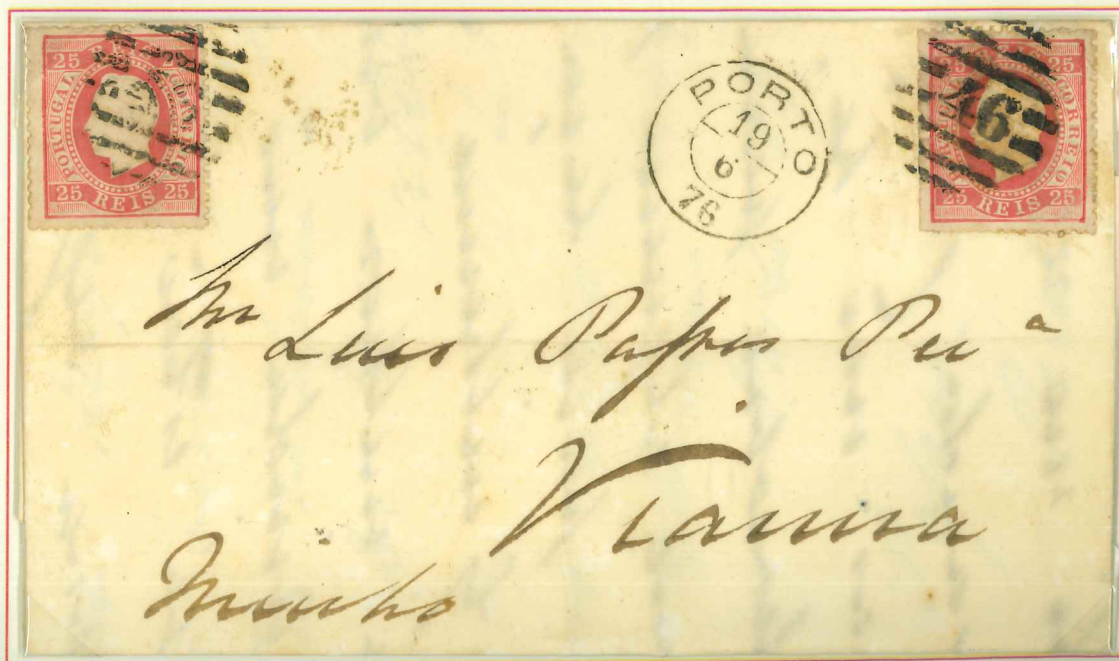 25 REIS 25
PORTUGAL CORREIO
25 REIS 25
PORTO
19
6
76
25 25
CORREIO
46
25 REIS 25
Luis Passos Per.ª
Vianna
Minho